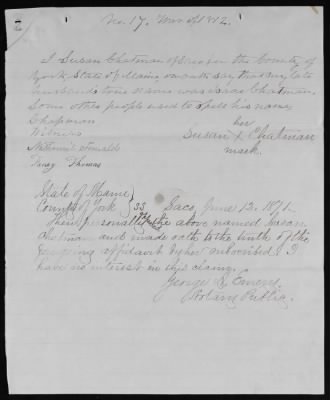 No. 17. War of 1812.
I Susan Chatman of Saco in the County of
York, State of Maine on oath say that my late
husbands true name was Isaac Chatman.
Some other people used to spell his name
Chapman
Witness her
Susan X Chatman
mark.
Nathaniel
Thomas
State of Maine
County of York } SS Saco, June 12. 1871.
Then personally the above named Susan
Chatman and made oath to the truth of the
foregoing affidavit by her subscribed & I
have no interest in this claim.
George R. Emery
Notary Public.